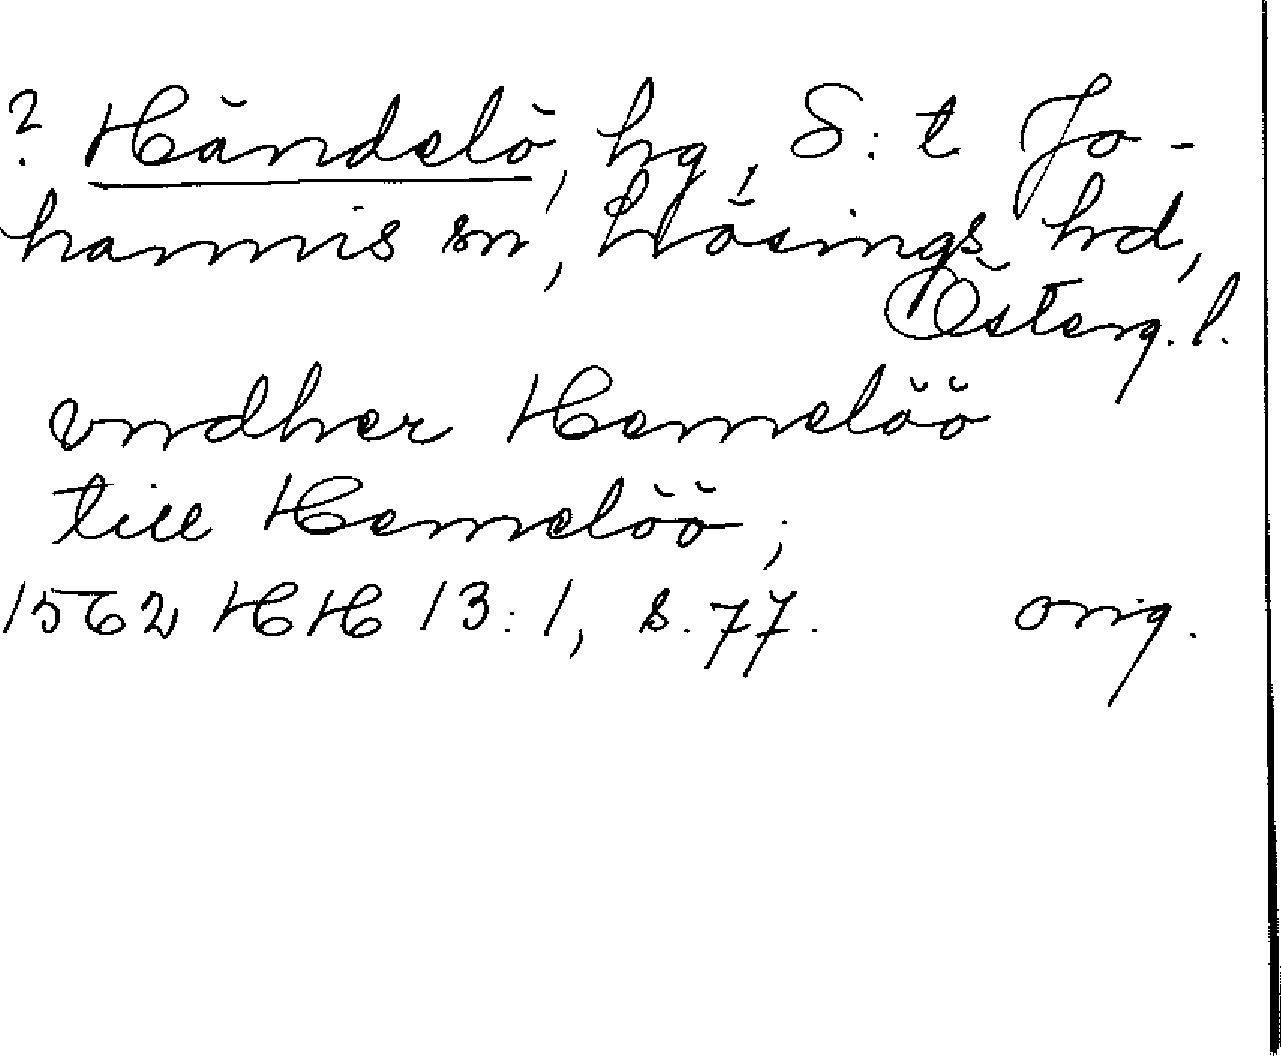 ? Händelö, hg, S:t Jo-
hannis sn, Lösings hd,
Österg.l.
vndher Hemelöö
till Hemelöö;
1562 HH 13:1, s. 77. orig.